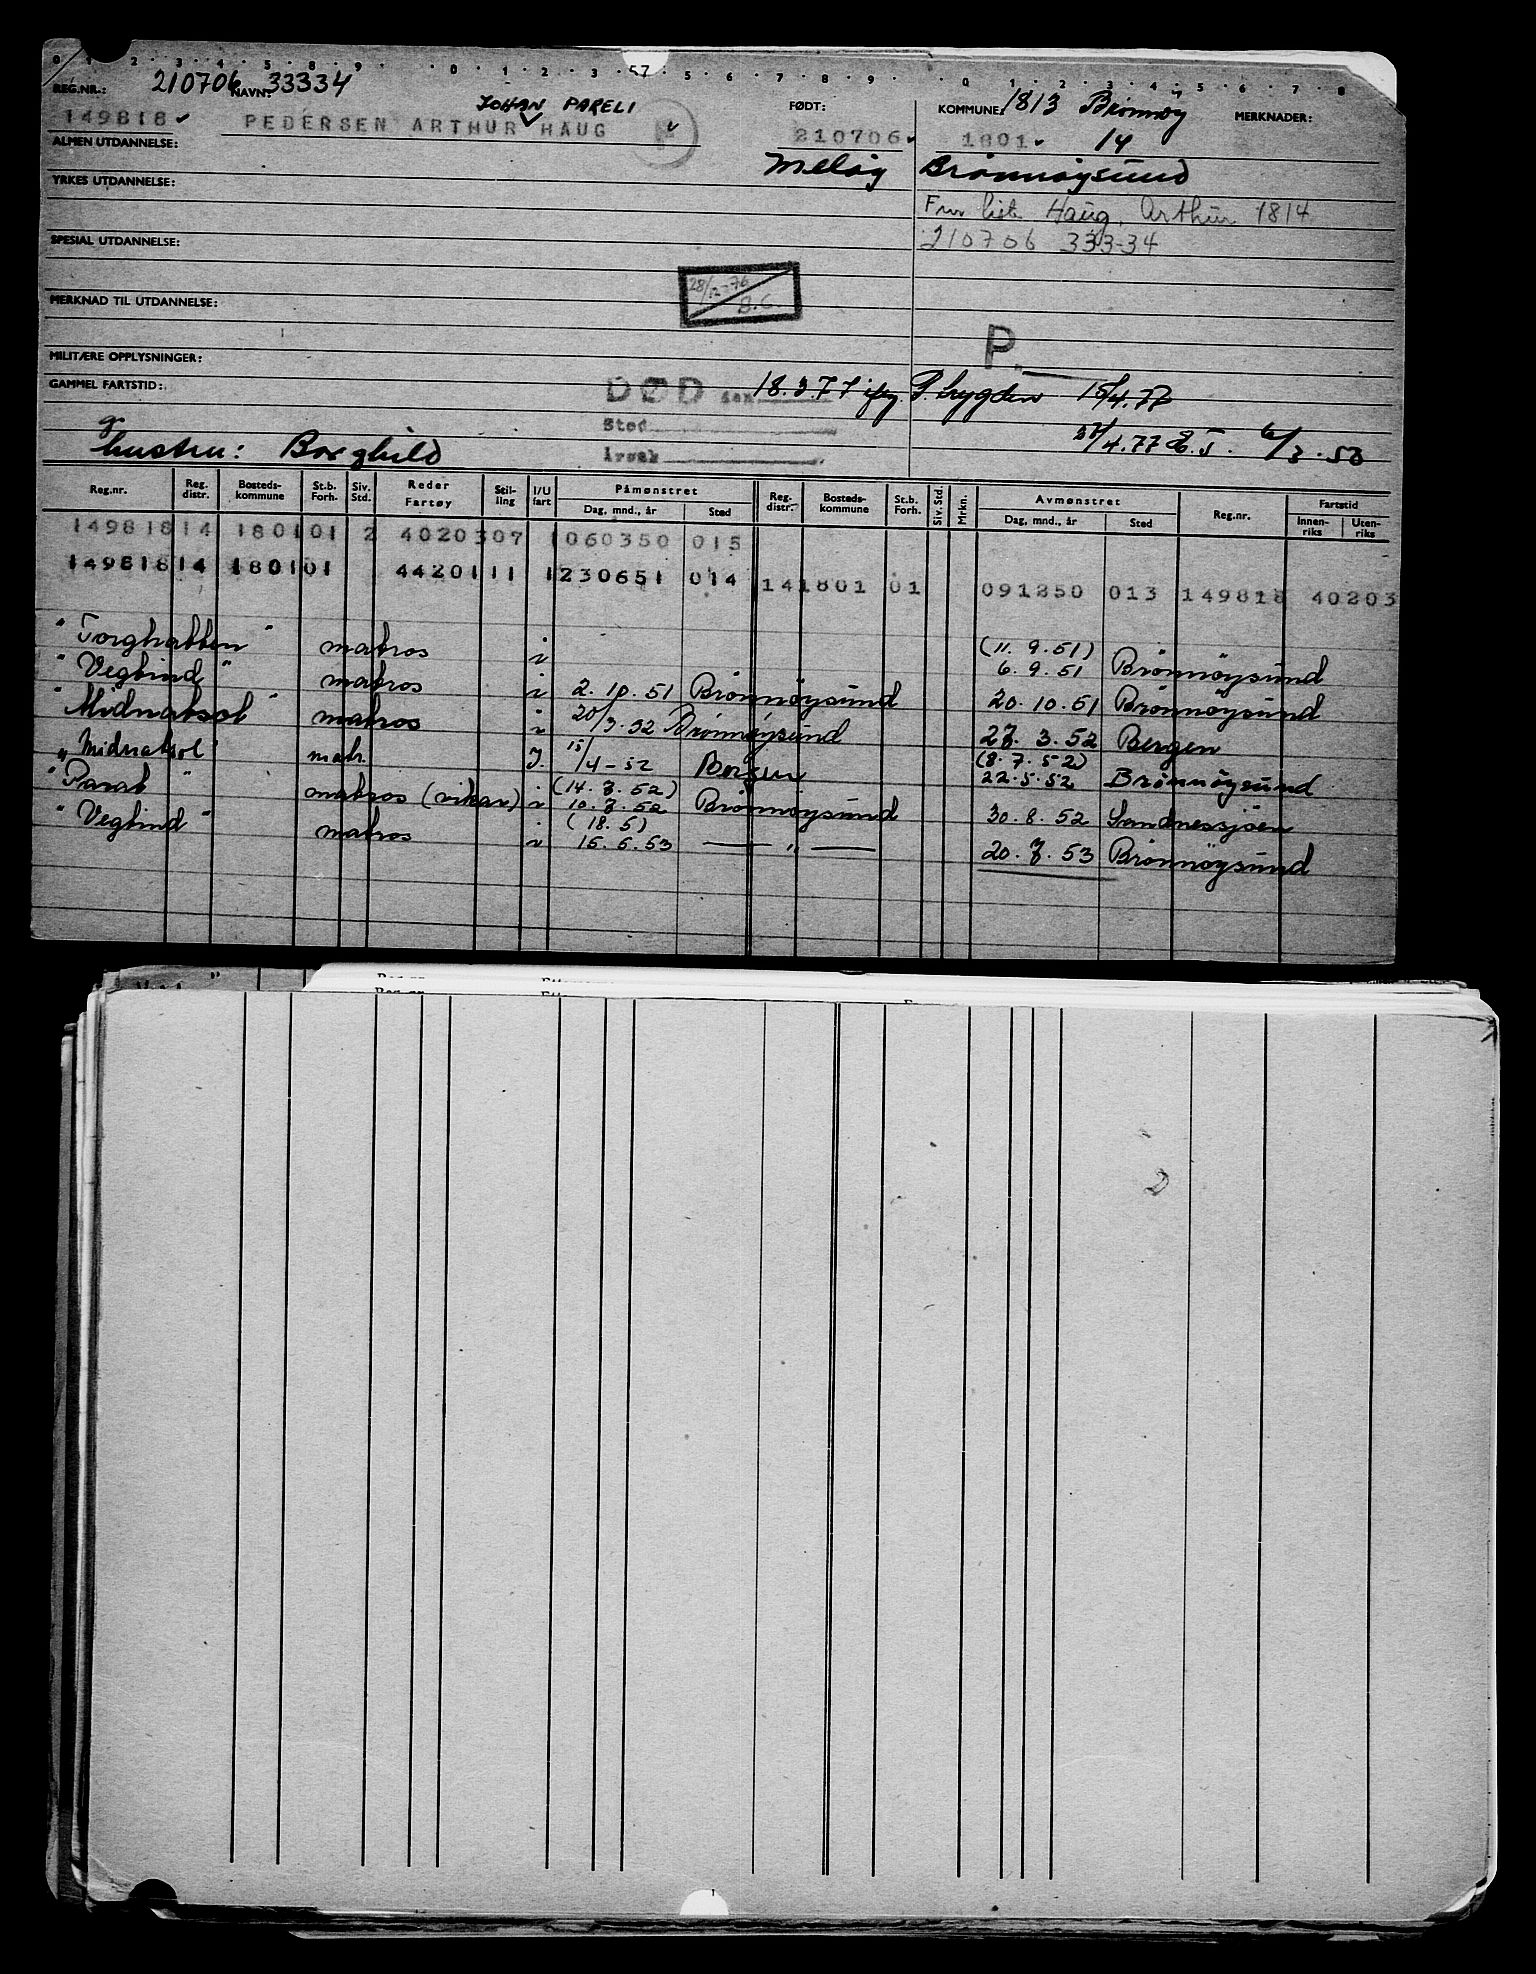 0 1 2 3 4 5 8 9 0 1 2 3 57 5 6 7 8 9 0 1 2 3 4 5 6 7 8
REG.NR.: 210706 NAVN: 33334
JOHAN PARELI FØDT: KOMMUNE: 1813 Brønnøy MERKNADER:
149818 PEDERSEN ARTHUR HAUG 210706 1801 14
ALMEN UTDANNELSE: Meløy Brønnøysund
YRKES UTDANNELSE:
Haug, Arthur 1814
SPESIAL UTDANNELSE: 210706 333-34
28/12-76
MERKNAD TIL UTDANNELSE: B.C.
P.
MILITÆRE OPPLYSNINGER:
GAMMEL FARTSTID: DØD den 18.3.77 ifølg P. trygden 15/4.77
Sted
g hustru: Borghild Årsak /4.77 6/3.53
Reg.nr. Reg. distr. Bosteds-kommune St.b. Forh. Siv. Std. Reder Fartøy Stil-ling I/U fart Påmønstret Dag, mnd., år Sted Reg-distr. Bosteds-kommune St.b. Forh. Siv. Std. Mrkn. Avmønstret Dag, mnd., år Sted Reg.nr. Fartstid Innen-riks Uten-riks
149818 14 1801 01 2 4020307 1 060350 015
149818 14 1801 01 4420111 1 230651 014 14 1801 01 091250 013 149818 40203
"Torghatten" matros i (11.9.51) 6.9.51 Brönnöysund
"Vegtind" matros i 2.10.51 Brönnöysund 20.10.51 Brönnöysund
"Midnatsol" matros i 20/3.52 Brönnöysund 27.3.52 Bergen
"Midnatsol" matr. J. 15/4-52 Bergen (8.7.52) 22.5.52 Brönnöysund
"Parat" matros (vikar) i (14.7.52) 10.7.52 Brönnöysund 30.8.52 Sandnessjöen
"Vegtind" matros i (18.5) 15.5.53 — " — 20.7.53 Brönnöysund